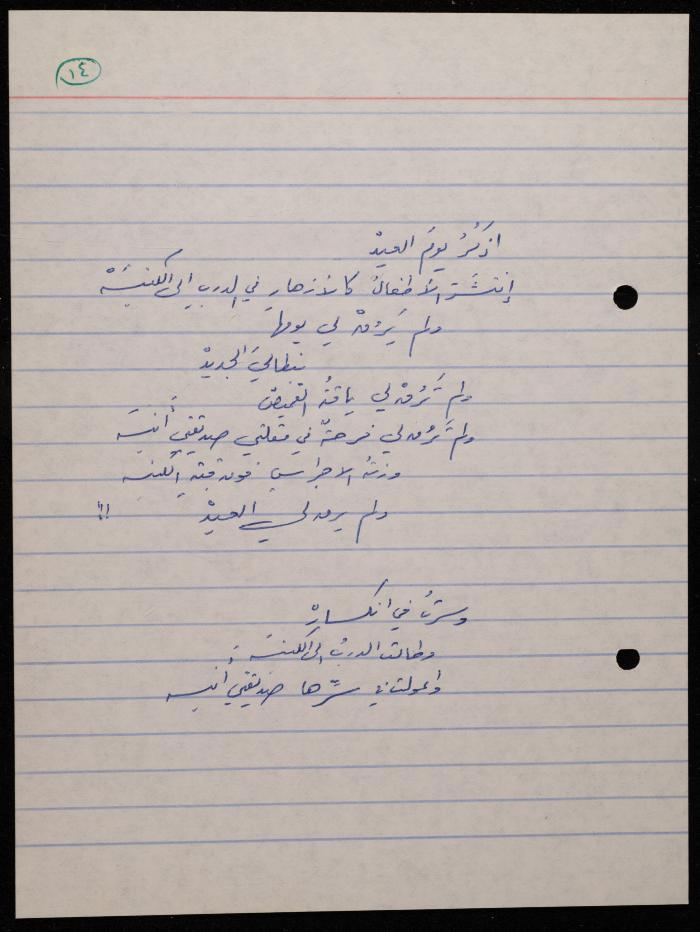 ١٤
اذكُرُ يومَ العيدْ
إنتشَرَ الأطفالُ كالأزهارِ في الدربِ إلى الكنيسَهْ
ولم يَرُقْ لي يومها
بنطاليَ الجديدْ
ولم تَرُقْ لي ياقةُ القميصْ
ولم تَرُق لي فرحةٌ في مقلتي صديقتي أنيسَه
ورنّة الاجراس فوق قبّة الكنيسه
ولم يرق لي العيدْ !!
وسرتُ في انكسارْ
وطالت الدربُ إلى الكنيسَه
وأعولت في سرِّها صديقتي أنيسه